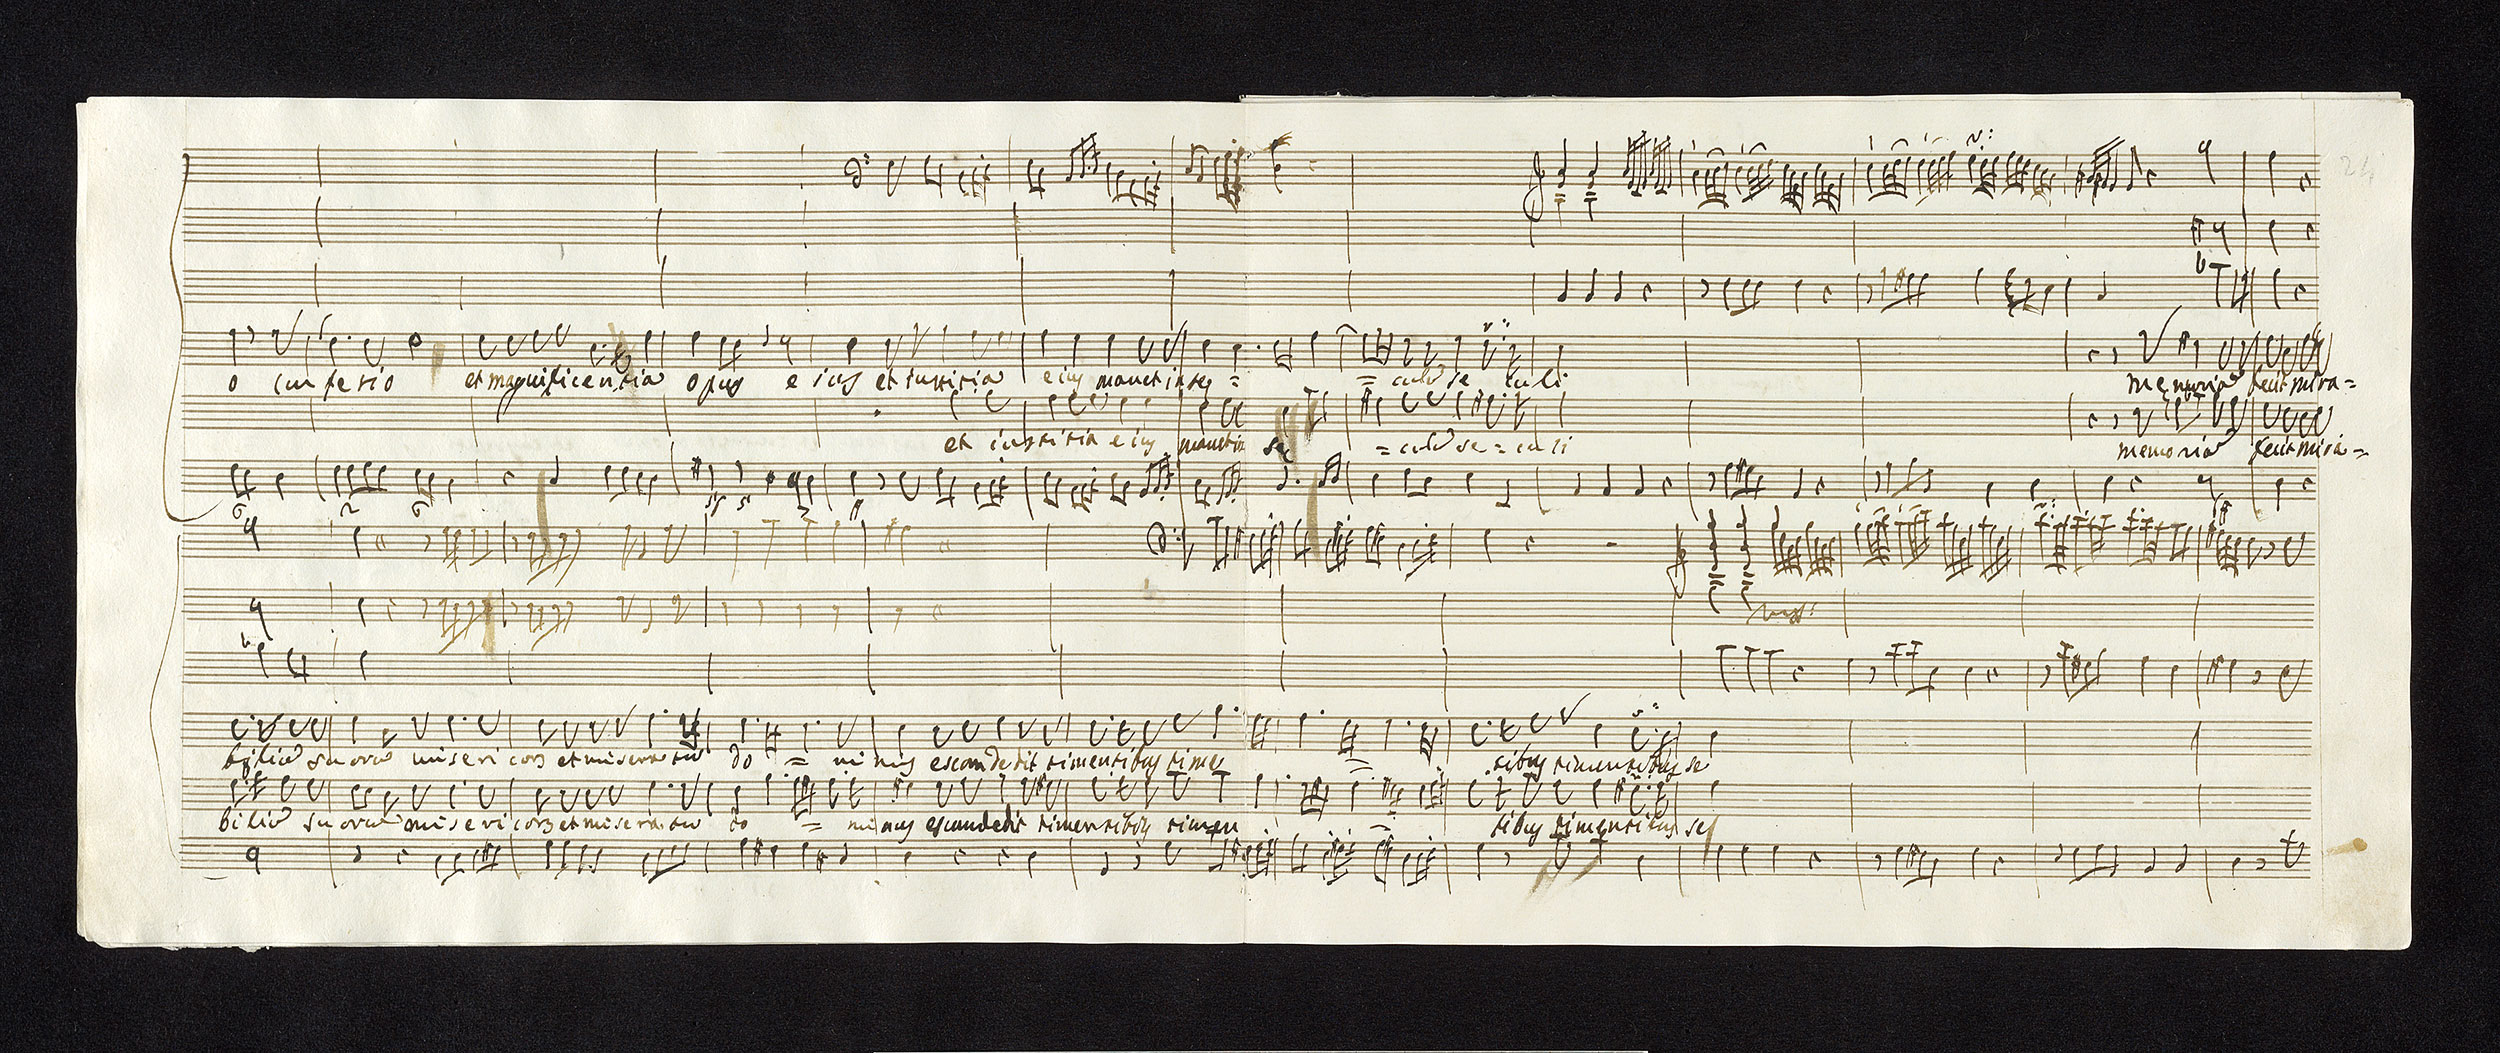 24
o confesio et magnificentia opus eius et iustitia eius manet in sec = = culu se culi memoria fecit mira=
et iustitia eius manet in sec = culu se = culi memoria fecit mira=
biliu suoru misericors et miserato do = minus escam dedit timentibus time = tibus timentibus se
biliu suoru misericors et miserato do = minus escam dedit timentibus timen = tibus timentibus se